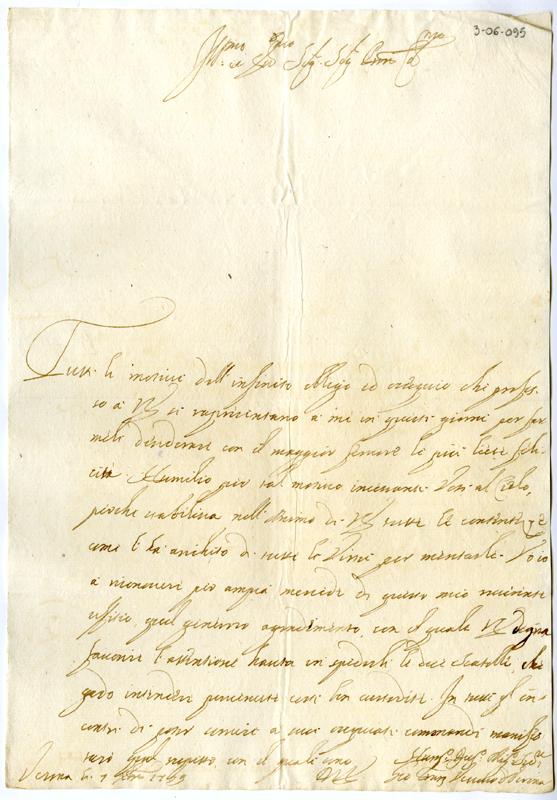 3-06-095
Ill.mo et Sig.r Sig.r
Tutti li motivi dell'infinito obligo ed ossequio che profes-
so a VS si rapresentano a me in questi giorni per far
meli desiderare con il maggior fervore le più liete feli-
cità. Humilio per tal motivo incessanti Voti al Cielo,
perche stabilisca nell'Animo di VS tutte le contentezze
come l'ha arichito di tutte le Virtù per meritarle. Vo io
a riconoscere per ampia mercede di questo mio riverente
uffitio, quel generoso agradimento, con il quale VS degna
favorire l'attentione hauta in spedirli le due scatelle, che
godo intendere pervenute costì ben custodite. In tutti gl'in-
contri di poter servire a suoi ossequiati comandi manifes-
terò quel rispetto, con il quale sono
Verona li 7
VS